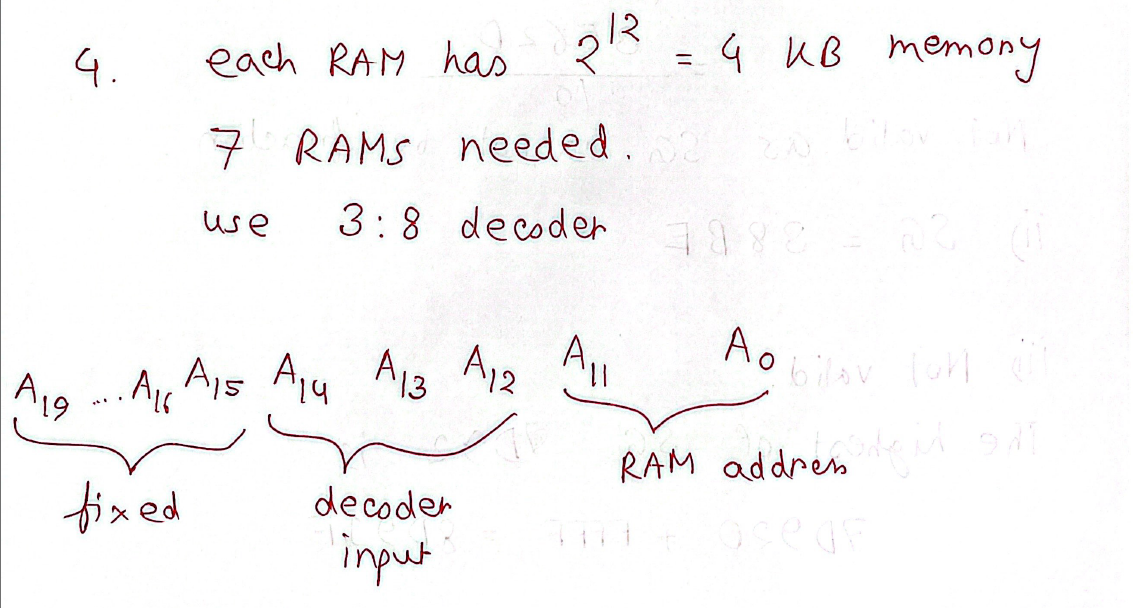 4. each RAM has 2^12 = 4 KB memory
7 RAMs needed.
use 3:8 decoder
A19 ... A16 A15 A14 A13 A12 A11 A0
fixed decoder input RAM address